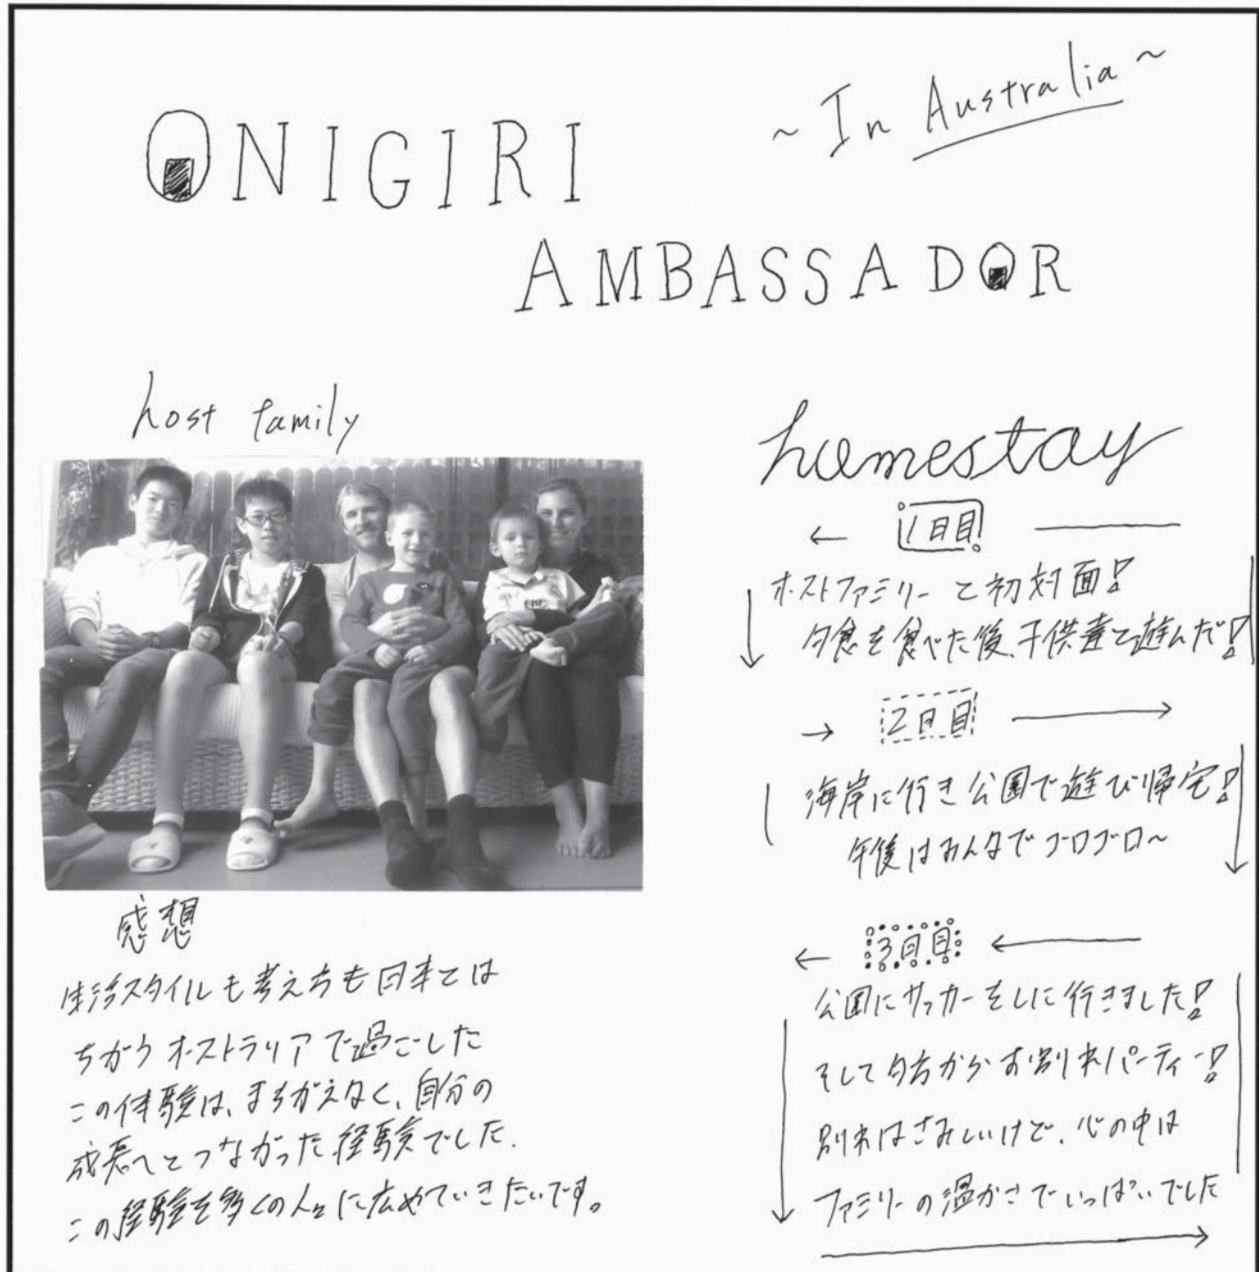 ~ In Australia ~
ONIGIRI
AMBASSADOR
host family
感想
生活スタイルも考え方も日本とは
ちがうオーストラリアで過ごした
この体験は、まちがえなく、自分の
成長へとつながった経験でした.
この経験を多くの人々に広めていきたいです。
homestay
1日目!
ホストファミリーと初対面!
夕食を食べた後、子供達と遊んだ!
2日目
海岸に行き公園で遊び帰宅!
午後はみんなでゴロゴロ~
3日目
公園にサッカーをしに行きました!
そして夕方からお別れパーティー!
別れはさみしいけど、心の中は
ファミリーの温かさでいっぱいでした